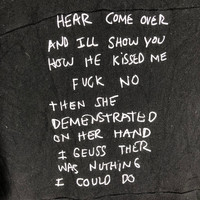 HEAR COME OVER
AND ILL SHOW YOU
HOW HE KISSED ME
FUCK NO
THEN SHE
DEMENSTRATED
ON HER HAND
I GEUSS THER
WAS NUTHING
I COULD DO